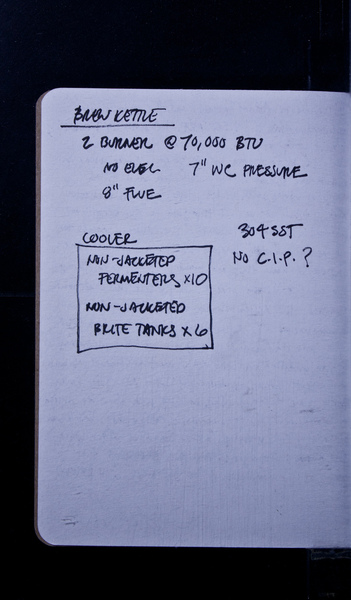 BREW KETTLE
2 BURNER @ 70,000 BTU
NO ELEC 7" WC PRESSURE
8" FLUE
COOLER
NON-JACKETED
FERMENTERS x10
NON-JACKETED
BRITE TANKS x 6
304 SST
NO C.I.P. ?